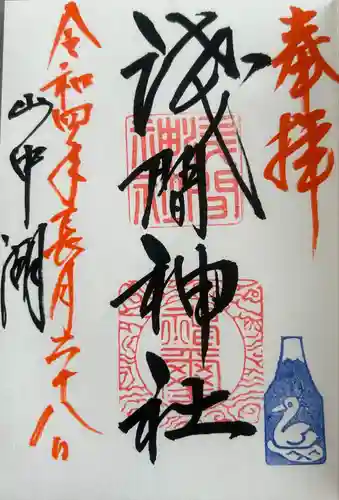 奉拝
浅間神社
山中湖
令和四年長月二十八日